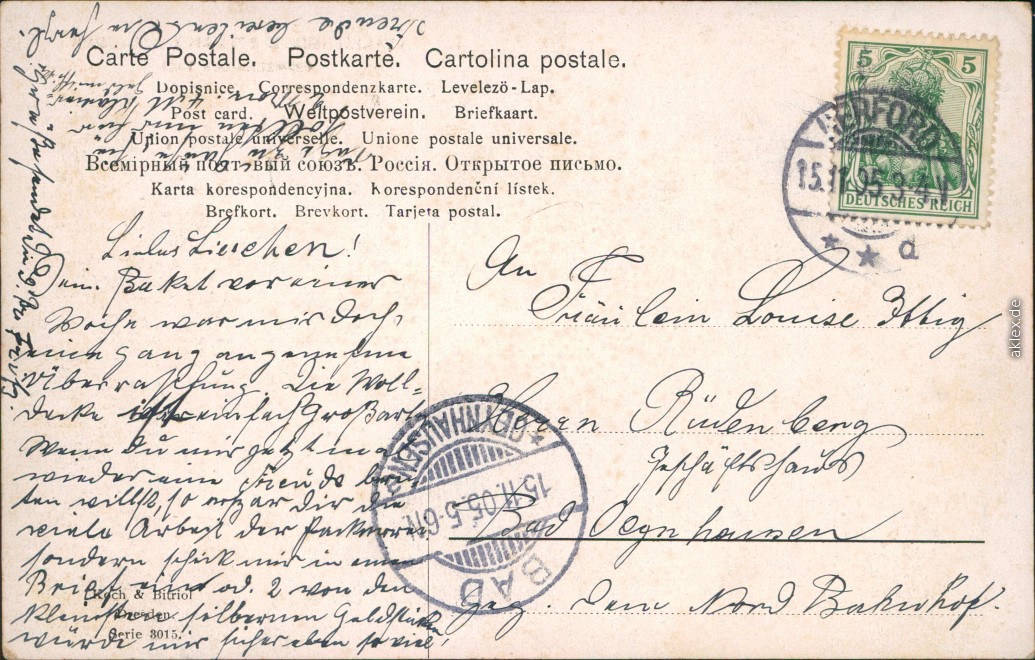 Carte Postale. Postkarte. Cartolina postale.
Dopisnice. Correspondenzkarte. Levelező-Lap.
Post card. Weltpostverein. Briefkaart.
Union postale universelle. Unione postale universale.
Всемірный почтовый союзъ. Россія. Открытое письмо.
Karta korespondencyjna. Korespondenční lístek.
Brefkort. Brevkort. Tarjeta postal.
5 5
DEUTSCHES REICH
HERFORD
15.11.05.3-4 N
* * d
Liebes Lieschen!
Dein Paket vor einer
Woche war mir doch
eine ganz angenehme
Überraschung. Die Woll-
decke ist einfach Großart
Wenn Du mir jetzt mal
wieder eine Freude berei-
ten willst, so erspar dir die
viele Arbeit der Packerrei
sondern schick mir in einem
Brief ein od. 2 von den
kleinsten silbernen Geldstücken
würde mir sicher eben so viel
Freude bereiten
An
Fräulein Louise Ittig
Herren Rüdenberg
Geschäftshaus
Bad Oeynhausen
Geg. dem Nord Bahnhof.
BAD
OEYNHAUSEN
15.11.05.5-6 N.
Koch & Bitriol
Dresden.
Serie 3015.
aklex.de